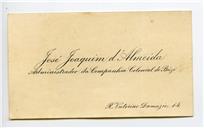 José Joaquim d'Almeida
Administrador da Companhia Colonial do Búzi
R. Victorino Damazio, 14